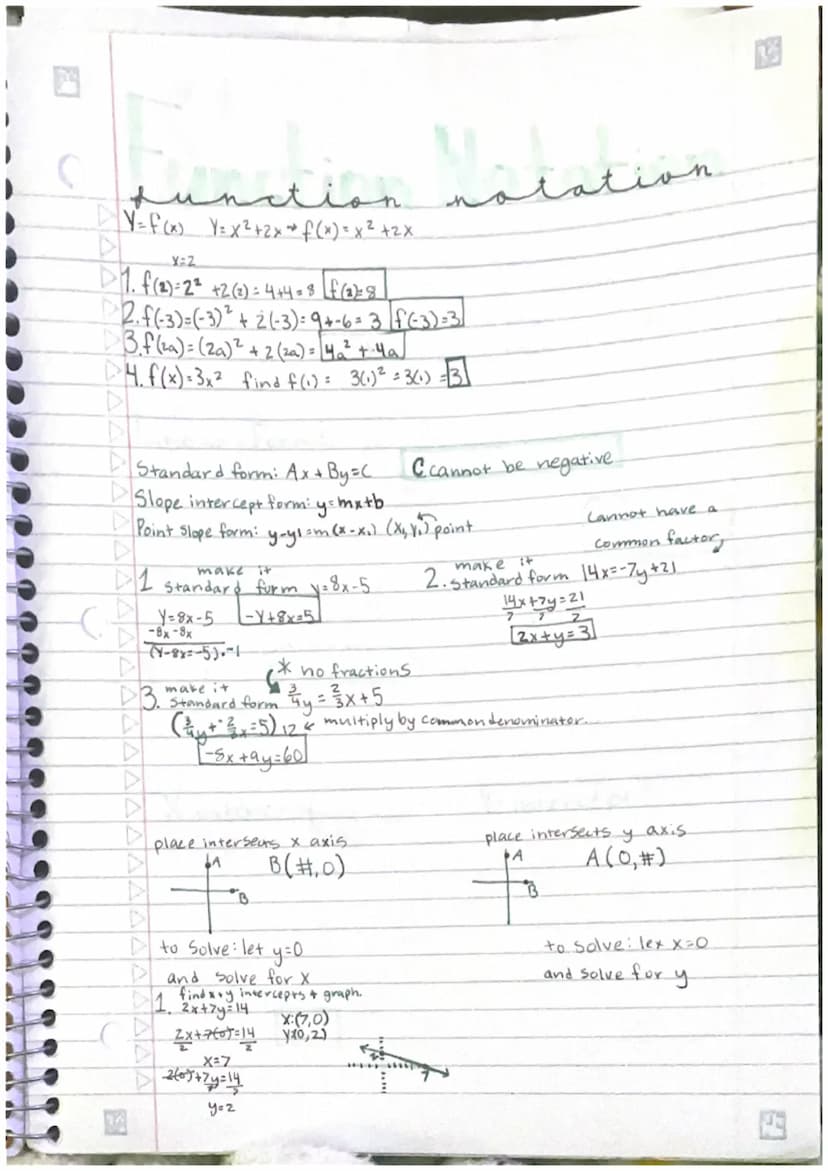 Function Notation
function notation
Y=f(x) Y=x²+2x → f(x)=x²+2x
x=2
1. f(2)=2² +2(2)=4+4=8 f(2)=8
2. f(-3)=(-3)² + 2(-3)=9+-6=3 f(-3)=3
3. f(2a)=(2a)² + 2(2a)= 4a² + 4a
4. f(x)=3x² find f(1)= 3(1)² = 3(1) = 3
Standard form: Ax + By=C C cannot be negative
Slope intercept form: y=mx+b
Point Slope form: y-y1=m(x-x1) (X1, Y1) point
Cannot have a
common factor
1 make it
Standard form y=8x-5
Y=8x-5 -Y+8x=5
-8x -8x
(Y-8x=-5).-1
2. make it
standard form 14x=-7y+21
14x+7y=21
7 7 7
2x+y=3
* no fractions
3. make it
Standard form 3/4y = 2/3x+5
(3/4y+-2/3x=5)12 ← multiply by common denominator.
-8x+9y=60
place intersects x axis
A B(#,0)
B
to Solve: let y=0
and solve for x
place intersects y axis
A A(0,#)
B
to solve: lex x=0
and solve for y
1. find x+y intercepts + graph.
2x+7y=14
2x+7(0)=14
2 2
x=7
2(0)+7y=14
7 7
y=2
X:(7,0)
Y:(0,2)
2
7